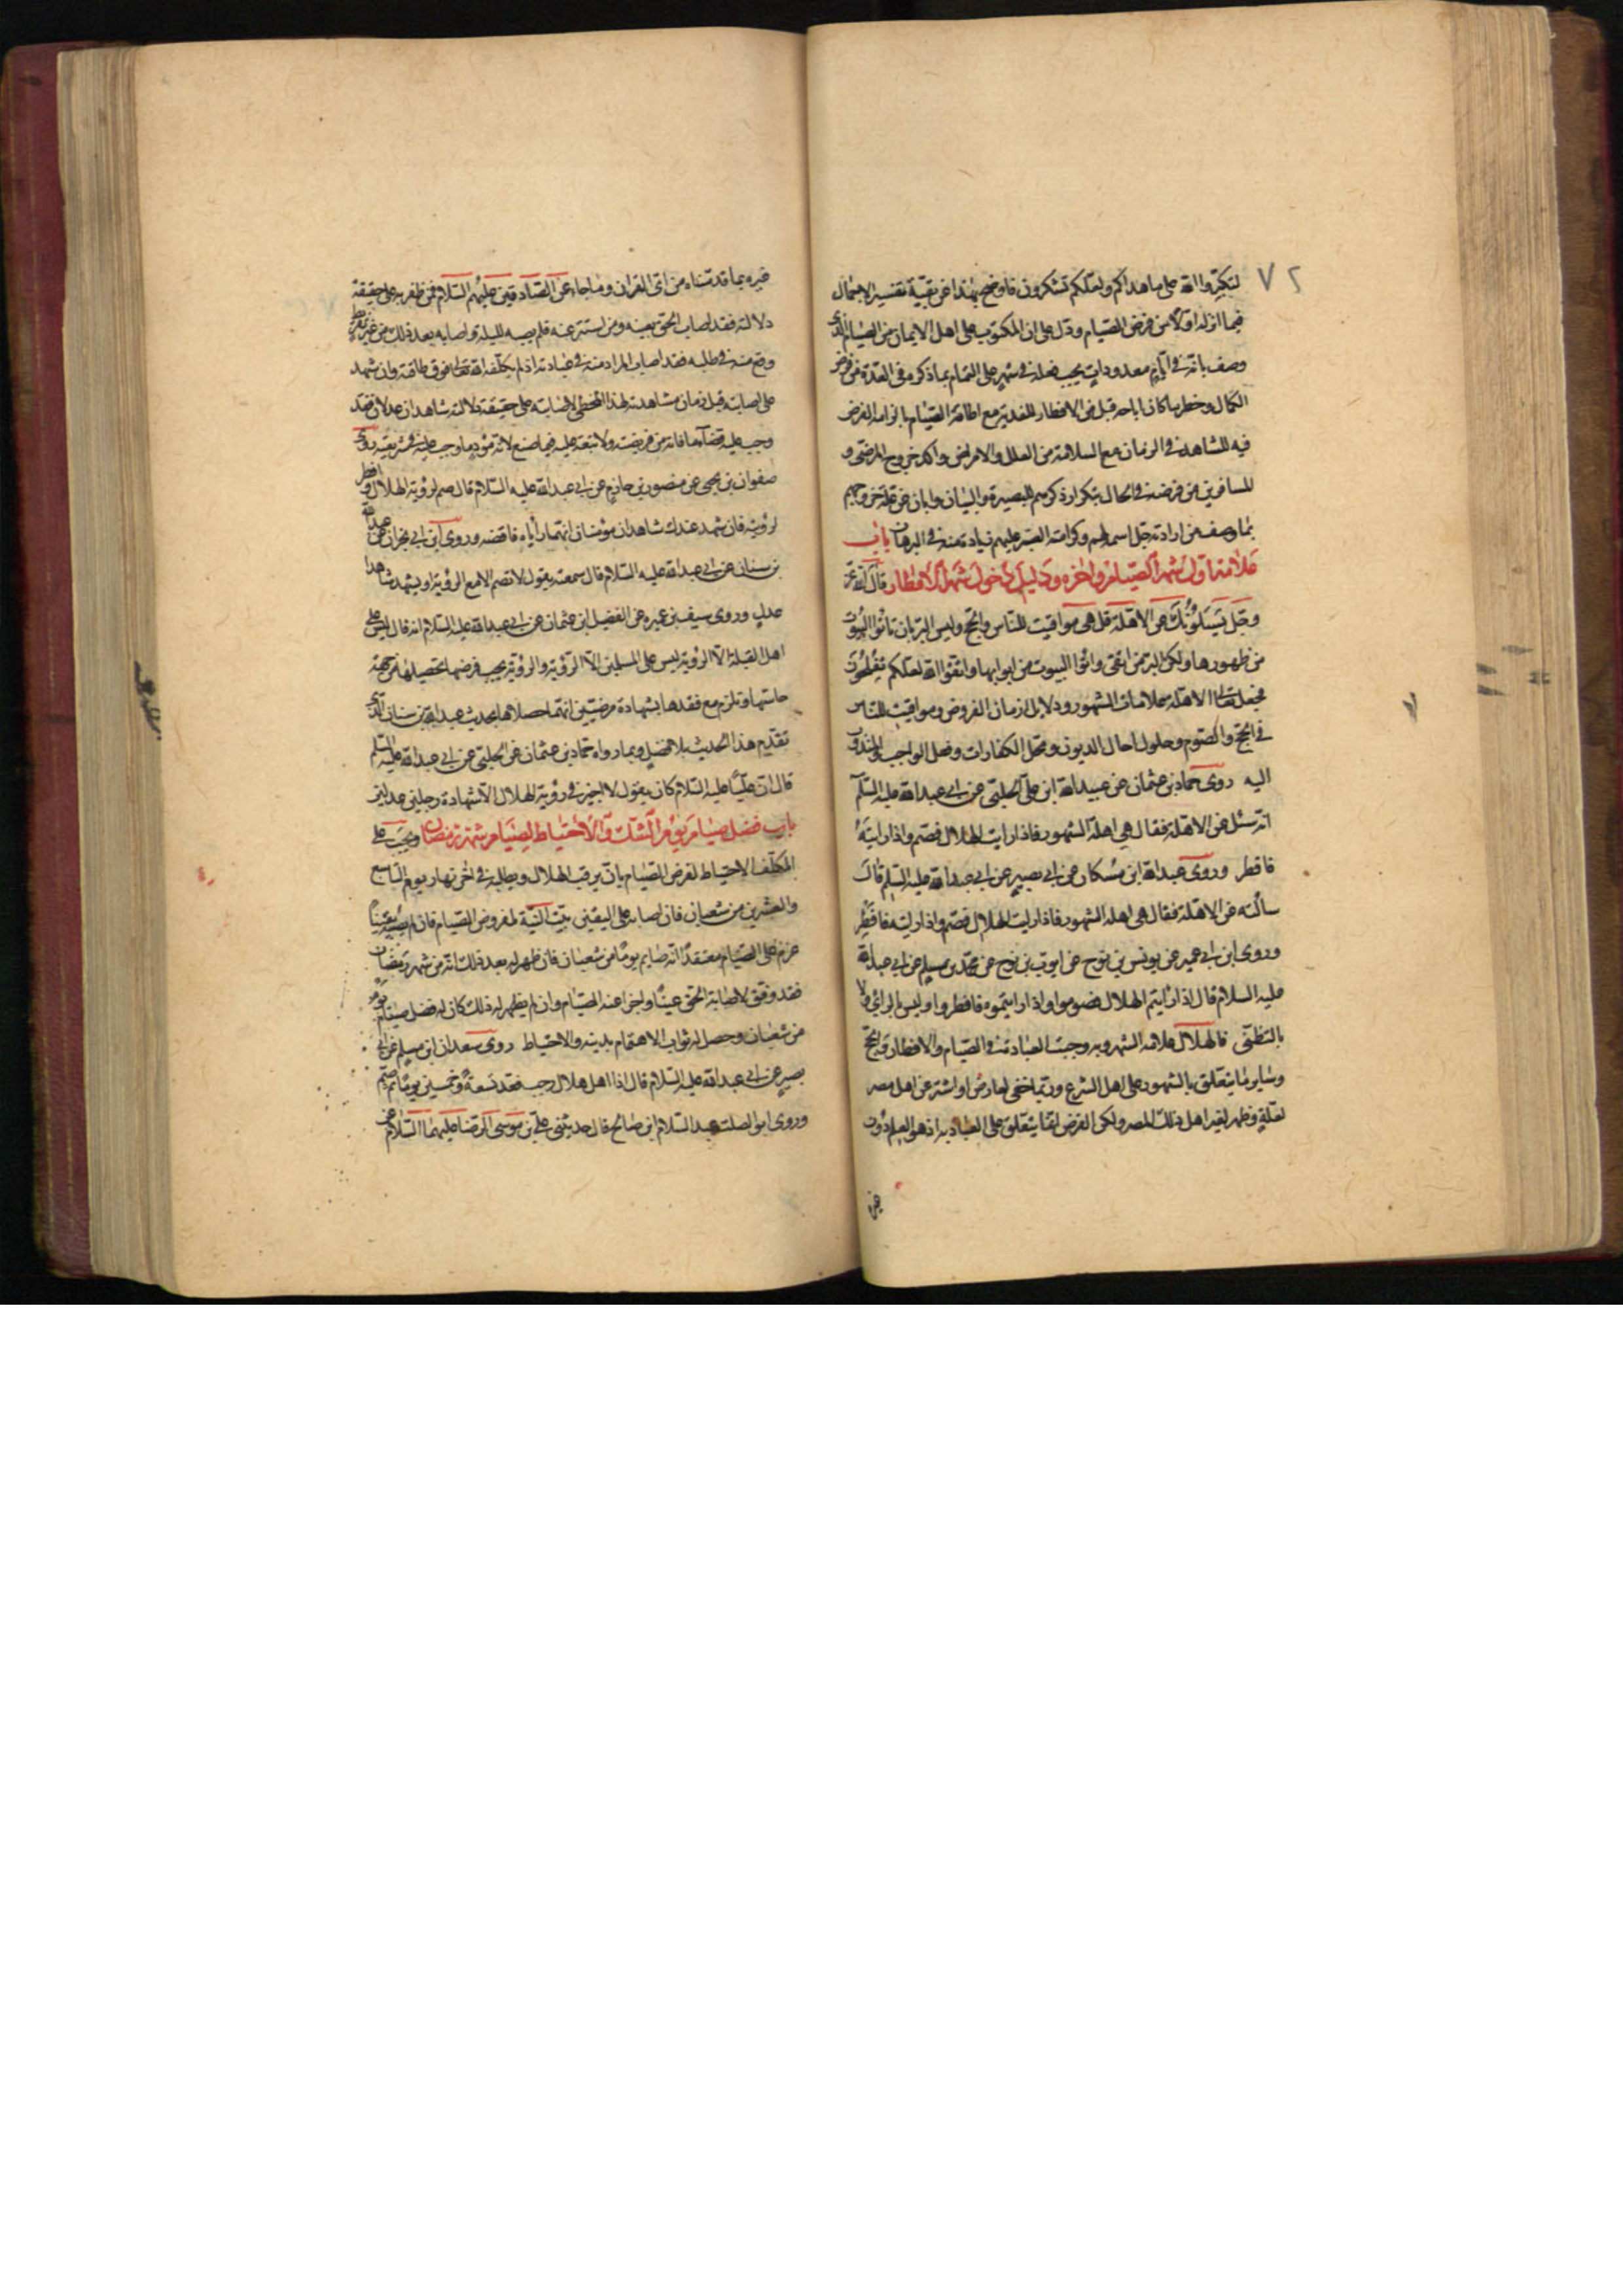 ٧٢
لتكبروا الله على ما هداكم ولعلكم تشكرون فاوضح بهذا عن بقية تفسير الاجمال
فيما انزله اولا من فرض الصيام ودل على ان المكتوب على اهل الايمان من الصيام الذى
وصف بانه فى ايام معدودات يجب فعله فى شهر على التمام بما ذكره فى العدة من فرض
الكمال وحظر ما كان اباحه قبل من الافطار للفدية مع اطاقة الصيام بالزامه الفرض
فيه للشاهد فى الزمان مع السلامة من العلل والامراض واكد خروج المرضى و
المسافرين من فرضه فى الحال بتكرار ذكرهم للبصيرة والبيان وابان عن علة خروجهم
بما وصف من ارادته جل اسمه لهم وكراهته العسر عليهم زيادة منه فى البرهان باب
علامة اول شهر الصيام واخره ودليل دخول شهر الافطار قال الله عز
وجل يسئلونك عن الاهلة قل هى مواقيت للناس والحج وليس البر بان تاتوا البيوت
من ظهورها ولكن البر من اتقى واتوا البيوت من ابوابها واتقوا الله لعلكم تفلحون
فجعل تعالى الاهلة علامات الشهور ودلايل ازمان الفروض ومواقيت للناس
فى الحج والصوم وحلول اجال الديون ومحل الكفارات وفعل الواجب والمندوب
اليه روى حماد بن عثمان عن عبيد الله ابن على الحلبى عن ابى عبد الله عليه السلام
انه سئل عن الاهلة فقال هى اهلة الشهور فاذا رايت الهلال فصم واذا رايته
فافطر وروى عبد الله ابن مسكان عن ابى بصير عن ابى عبد الله عليه السلم قال
سألته عن الاهلة فقال هى اهلة الشهور فاذا رايت الهلال فصم واذا رايته فافطر
وروى ابن ابى عمير عن يونس بن نوح عن ايوب بن نوح عن محمد بن مسلم عن ابى عبد الله
عليه السلام قال اذا رايتم الهلال فصوموا واذا رايتموه فافطروا وليس بالراى ولا
بالتظنى فالهلال علامة الشهر وبه وجبت العبادة فى الصيام والافطار والحج
وساير ما يتعلق بالشهور على اهل الشرع وربما خفى لعارض او استتر عن اهل مصر
لعلة وظهر لغير اهل ذلك المصر ولكن الفرض انما يتعلق على العباد به اذ هو العلم دون
غيره بما قدمناه من اى القران وما جاء عن الصادقين عليهم السلام فمن ظفر به على حقيقة
دلالته فقد اصاب الحق بعينه ومن استتر عنه فلم يصبه لليلة واصابه بعد ذلك من غير تفريط
وقع منه فى طلبه فقد اصاب المراد منه فى عبادته اذ لم يكلفه الله تعالى فوق طاقته وان شهد
على اصابته قبل زمان مشاهدته لهذا المخطى لاصابته على حقيقة دلالته شاهدان عدلان فقد
وجب عليه قضاء ما فاته من فريضته ولا تبعة عليه فيما صنع لانه مؤد ما وجب عليه فى شريعته روى
صفوان بن يحيى عن منصور بن حازم عن ابى عبد الله عليه السلام قال صم لرؤية الهلال وافطر
لرؤيته فان شهد عندك شاهدان مؤمنان انهما راياه فاقضه وروى ابن ابى نجران عن عبد الله
بن سنان عن ابى عبد الله عليه السلام قال سمعته يقول لا تصم الا مع الرؤية او يشهد شاهدا
عدل وروى سيف بن عميره عن الفضيل ابن عثمان عن ابى عبد الله عليه السلام انه قال ليس على
اهل القبلة الا الرؤية ليس على المسلمين الا الرؤية والرؤية يجب فرضها بتحصيلها من جهة
حاستها وتلزم مع فقدها بشهادة مرضيين انهما حصلاها بحديث عبد الله بن سنان الذى
تقدم هذا الحديث بلا فصل وبما رواه حماد بن عثمان عن الحلبى عن ابى عبد الله عليه السلم
قال ان عليا عليه السلام كان يقول لا اجيز فى رؤية الهلال الا شهادة رجلين عدلين
باب فضل صيام يوم الشك والاحتياط لصيام شهر رمضان ويجب على
المكلف الاحتياط لفرض الصيام بان يرقب الهلال ويطلبه فى اخر نهار يوم التاسع
والعشرين من شعبان فان اصابه على اليقين بيت النية لمفروض الصيام فان لم يصبه يقينا
عزم على الصيام معتقدا انه صايم يوما من شعبان فان ظهر له بعد ذلك انه من شهر رمضان
فقد وفق لاصابة الحق عينا واجزا عنه الصيام وان لم يظهر له ذلك كان له فضل صيام يوم
من شعبان وحصل له ثواب الاهتمام بدينه والاحتياط روى سعدان ابن مسلم عن ابى
بصير عن ابى عبد الله عليه السلام قال اذا اهل هلال رجب فعد تسعة وخمسين يوما ثم صم
وروى ابو الصلت عبد السلام ابن صالح قال حدثنى على بن موسى الرضا عليهما السلام عن